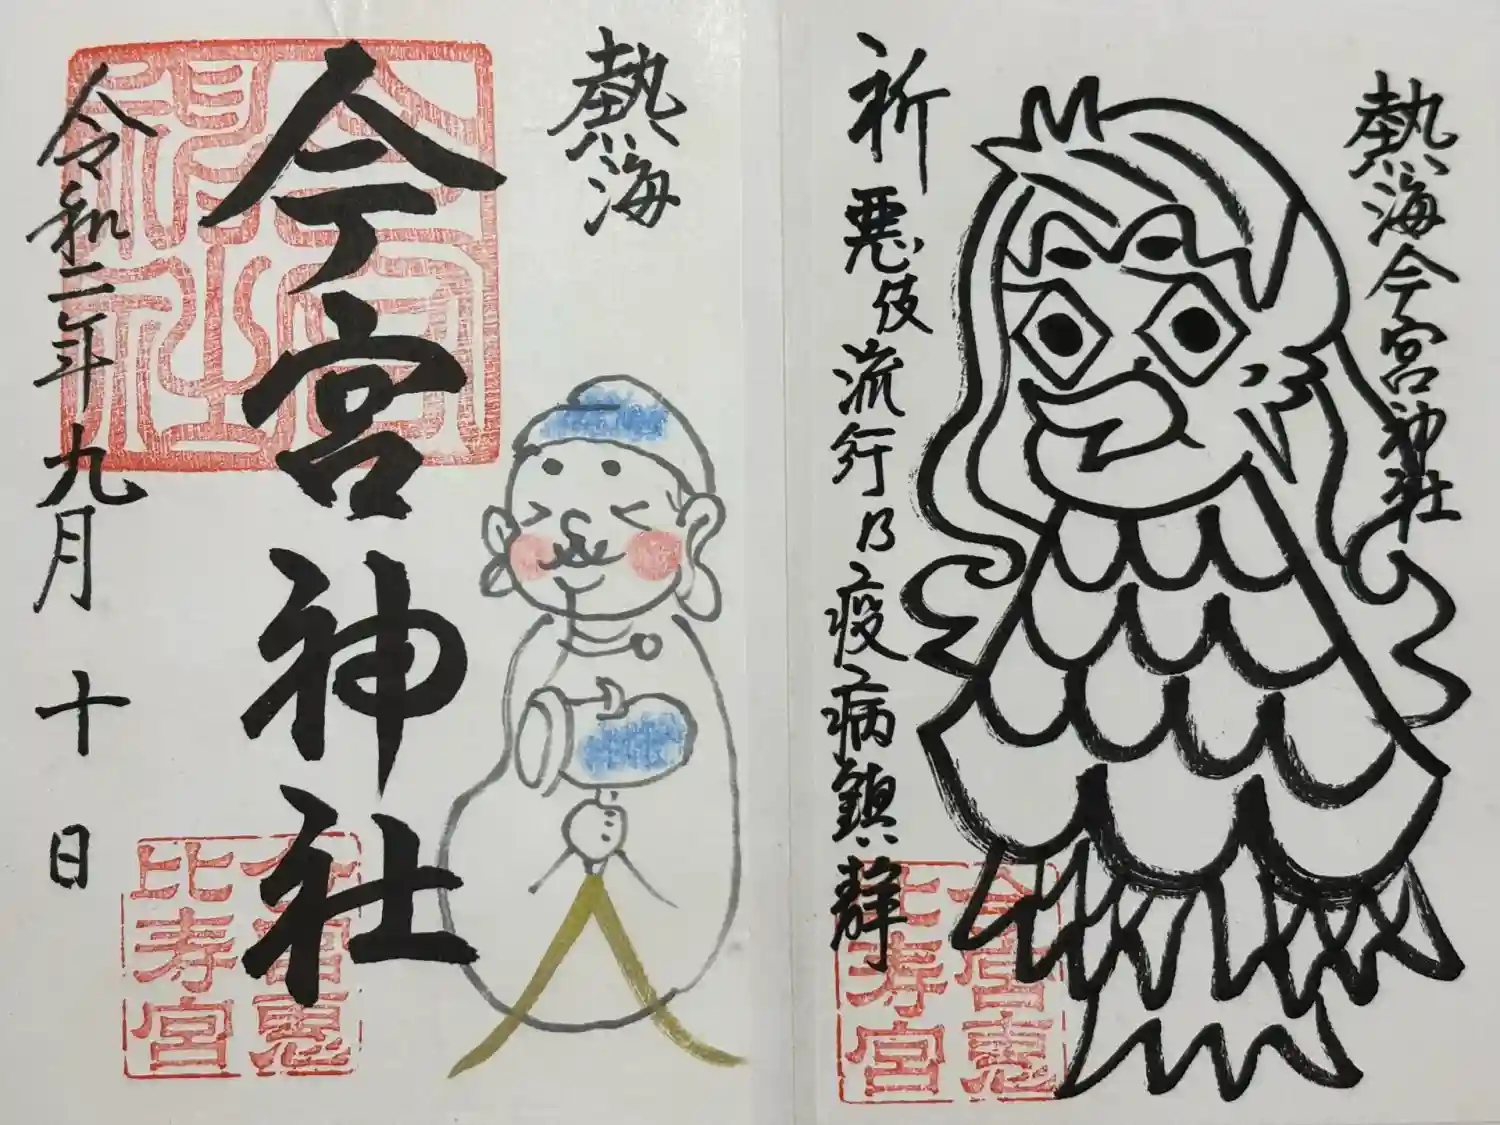 熱海今宮神社
祈 悪伎流行乃疫病鎮静
熱海
今宮神社
令和二年九月十日
今宮神社
今宮恵
比寿宮
今宮恵
比寿宮